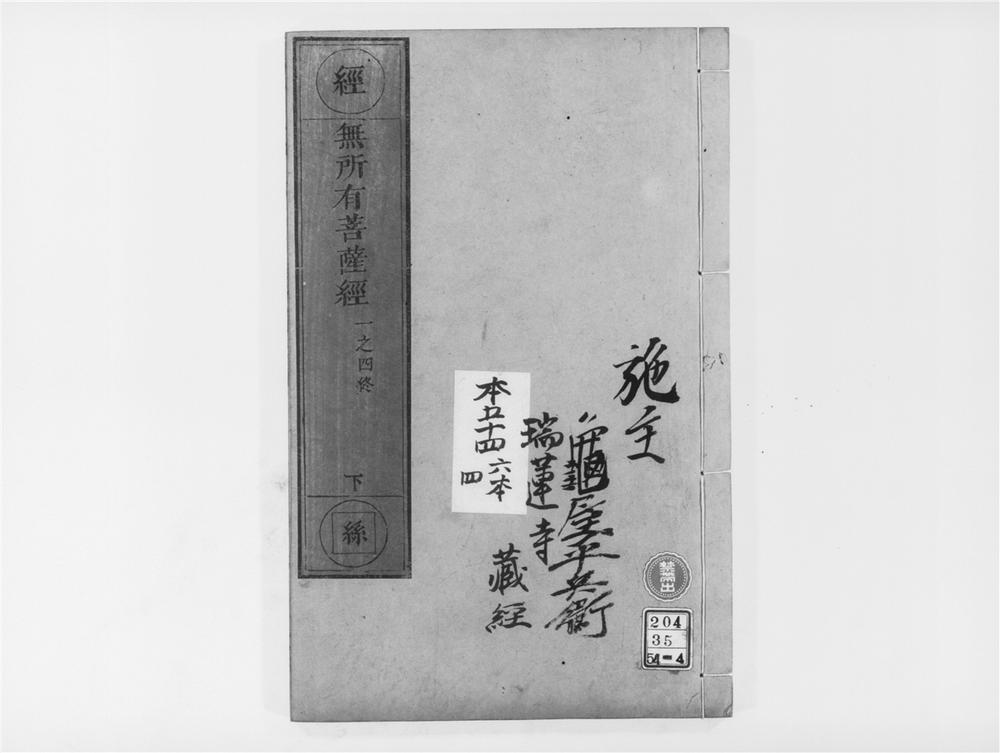 經
無所有菩薩經
一之四終
下
絲
施主
龜屋平兵衛
瑞蓮寺
藏經
本五十四
六本
四
禁帶出
204
35
54-4